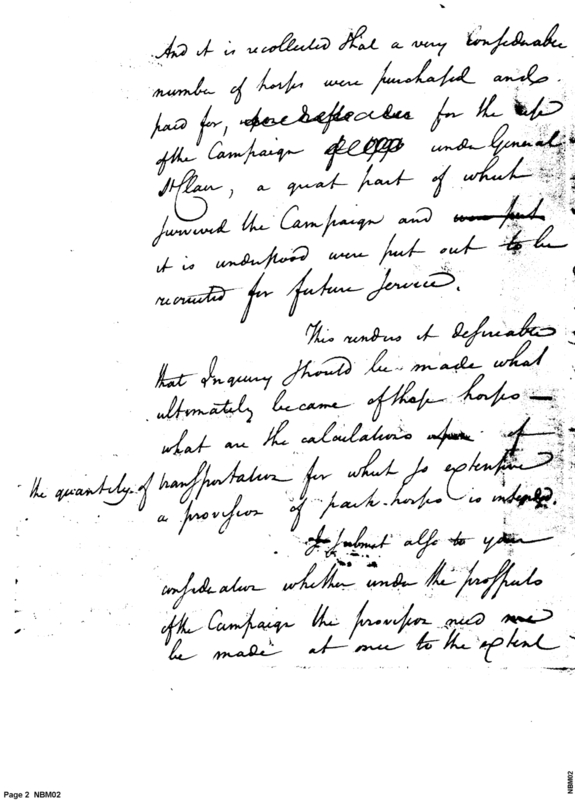 And it is recollected that a very considerable
number of horses were purchased and
paid for, for the use
of the Campaign under General
St Clair, a great part of which
survived the Campaign and were put
it is understood were put out to be
recruited for future service.
This renders it desireable
that Inquiry should be made what
ultimately became of those horses —
what are the calculations of
the quantity of transportation for which so extensive
a provision of pack-horses is intended.
I submit also to your
consideration whether under the prospects
of the Campaign the provision need
be made at once to the extent
Page 2 NBM02
NBM02